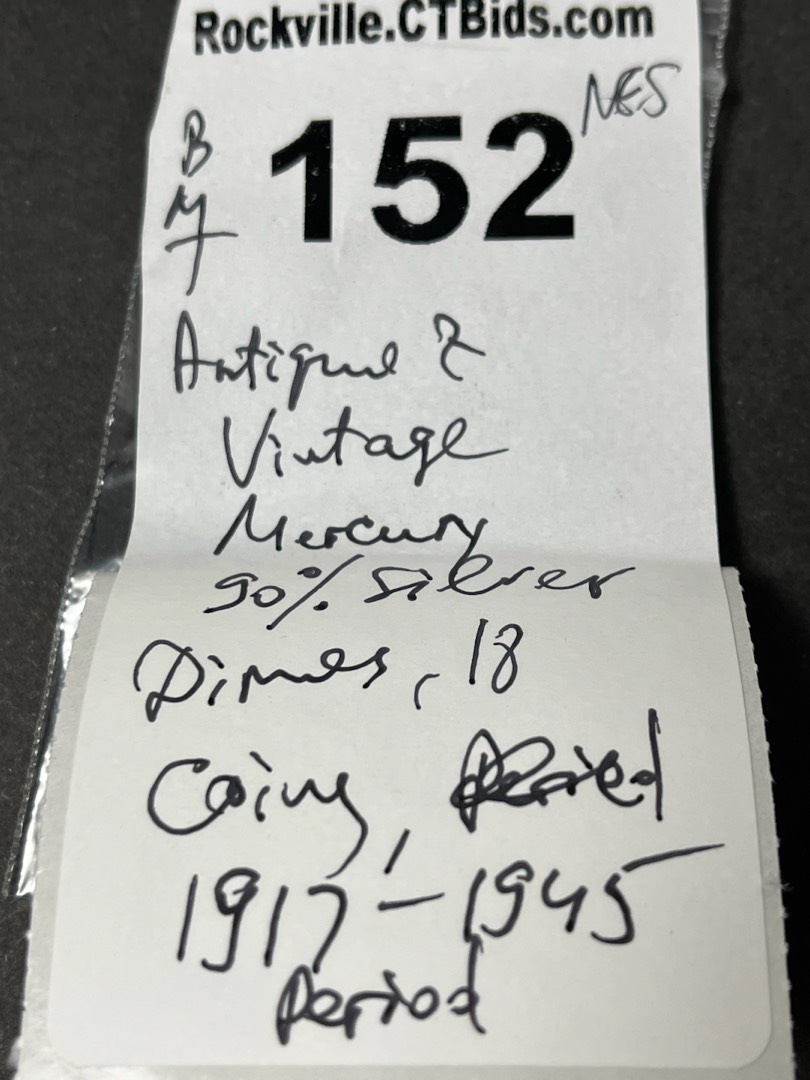 Rockville.CTBids.com
NES
BMT
152
Antique &
Vintage
Mercury
90% Silver
Dimes, 18
Coins, Period
1917-1945
Period